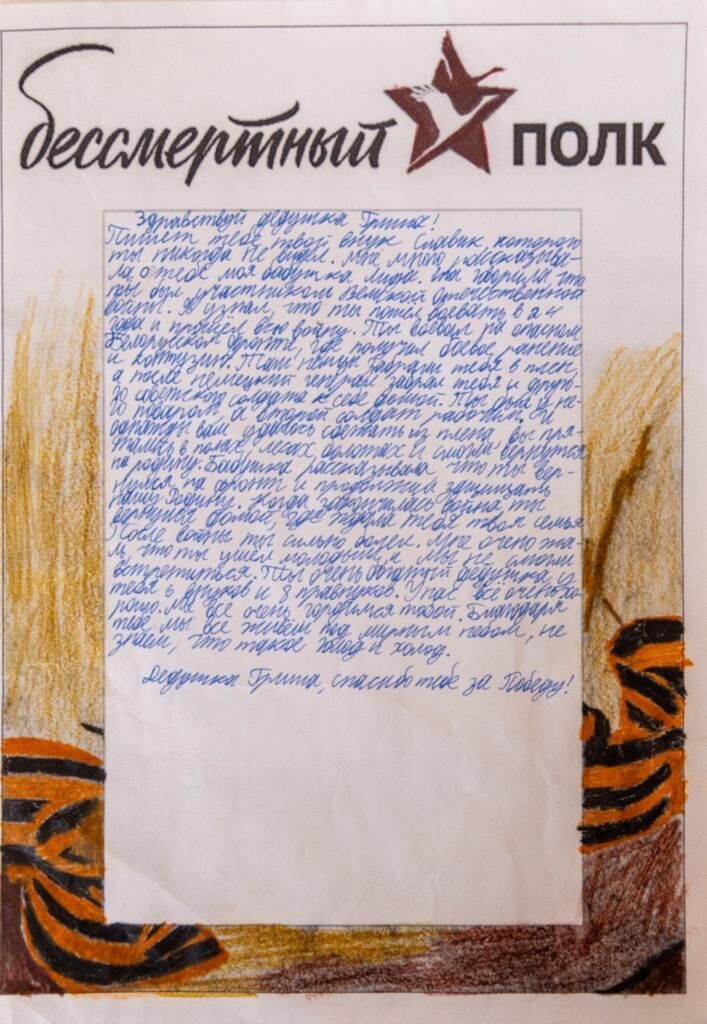 бессмертный полк
Здравствуй дедушка Гриша!
Пишет тебе твой внук Славик, которого
ты никогда не видел. Мне много рассказыва-
ла о тебе моя бабушка Лида. Она говорила, что
ты был участником Великой Отечественной
войны. Я узнал, что ты пошёл воевать в 21
год и прошёл всю войну. Ты воевал на
Белорусском фронте, где получил боевое ранение
и контузию. Там немцы забрали тебя в плен,
а после немецкий генерал забрал тебя и друго-
го советского солдата к себе домой. Ты был у не-
го поваром, а второй солдат рабочим. И
однажды вам удалось сбежать из плена, вы пря-
тались в полях, лесах, болотах и смогли вернутся
на родину. Бабушка рассказывала что ты вер-
нулся на фронт и продолжил защищать
нашу Родину. Когда закончилась война, ты
вернулся домой, где ждала тебя твоя семья
После войны ты сильно болел. Мне очень жа-
ль, что ты ушел молодым и мы не смогли
встретиться. Ты очень богатый дедушка, у
тебя 6 внуков и 8 правнуков. У нас все очень хо-
рошо. Мы все очень гордимся тобой. Благодаря
тебе мы все живём под мирным небом, не
знаем, что такое голод и холод.
Дедушка Гриша, спасибо тебе за Победу!